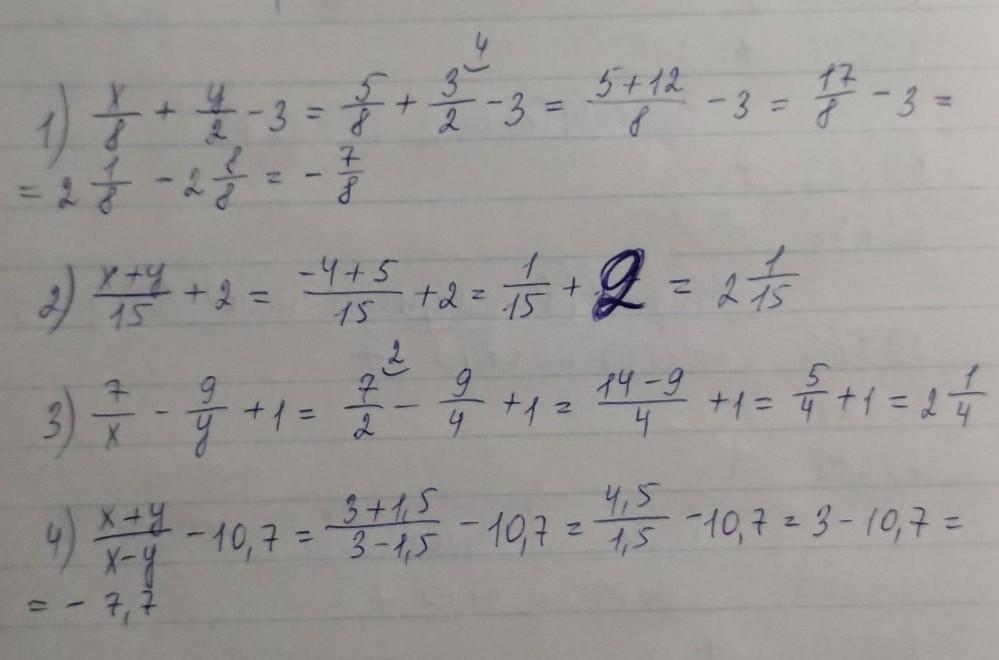 1) x/8 + y/2 - 3 = 5/8 + 3/2 (4) - 3 = (5+12)/8 - 3 = 17/8 - 3 =
= 2 1/8 - 2 8/8 = - 7/8
2) (x+y)/15 + 2 = (-4+5)/15 + 2 = 1/15 + 2 = 2 1/15
3) 7/x - 9/y + 1 = 7/2 (2) - 9/4 + 1 = (14-9)/4 + 1 = 5/4 + 1 = 2 1/4
4) (x+y)/(x-y) - 10,7 = (3+1,5)/(3-1,5) - 10,7 = 4,5/1,5 - 10,7 = 3 - 10,7 =
= - 7,7